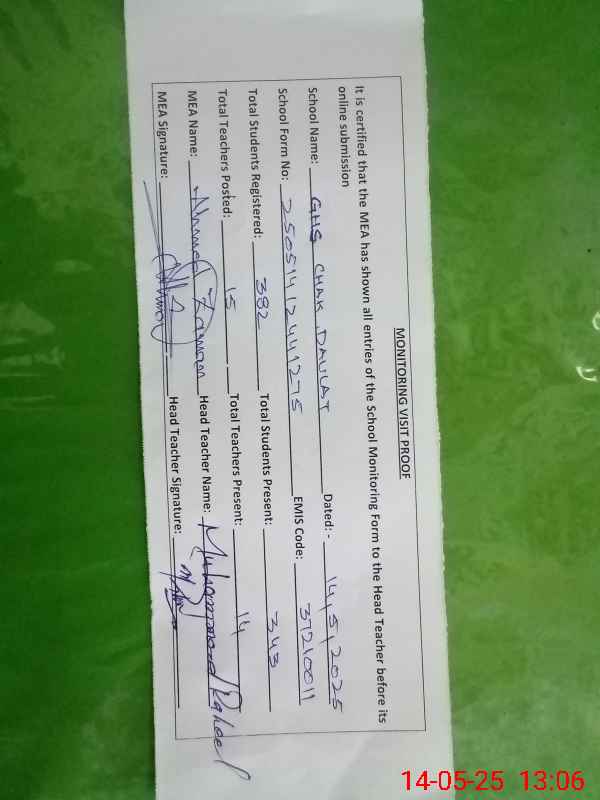 MONITORING VISIT PROOF
It is certified that the MEA has shown all entries of the School Monitoring Form to the Head Teacher before its
online submission
School Name: GHS CHAK DAULAT Dated: - 14/5/2025
School Form No: 25051412441275 EMIS Code: 37210011
Total Students Registered: 382 Total Students Present: 343
Total Teachers Posted: 15 Total Teachers Present: 14
MEA Name: Ahmed Zaman Head Teacher Name: Muhammad Raheel
MEA Signature: Head Teacher Signature:
14-05-25 13:06